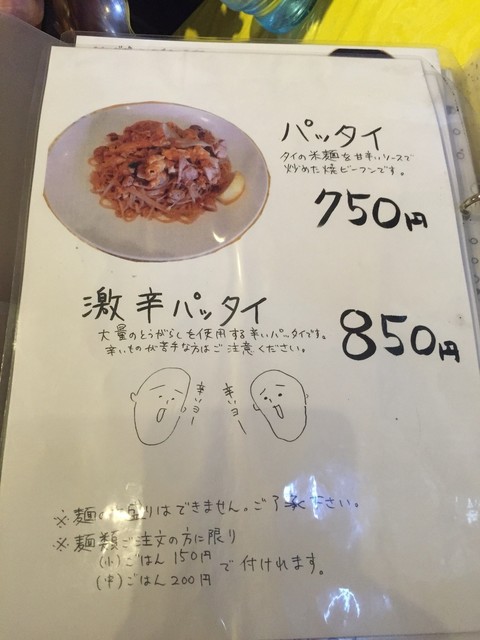 パッタイ
タイの米麺を甘辛いソースで
炒めた焼ビーフンです。
750円
激辛パッタイ
大量のとうがらしを使用する辛いパッタイです。
辛いものが苦手な方はご注意ください。
850円
辛いヨー
辛いヨー
※麺の 盛りはできません。ご了承下さい。
※麺類ご注文の方に限り
(小)ごはん 150円
(中)ごはん 200円
で付けれます。